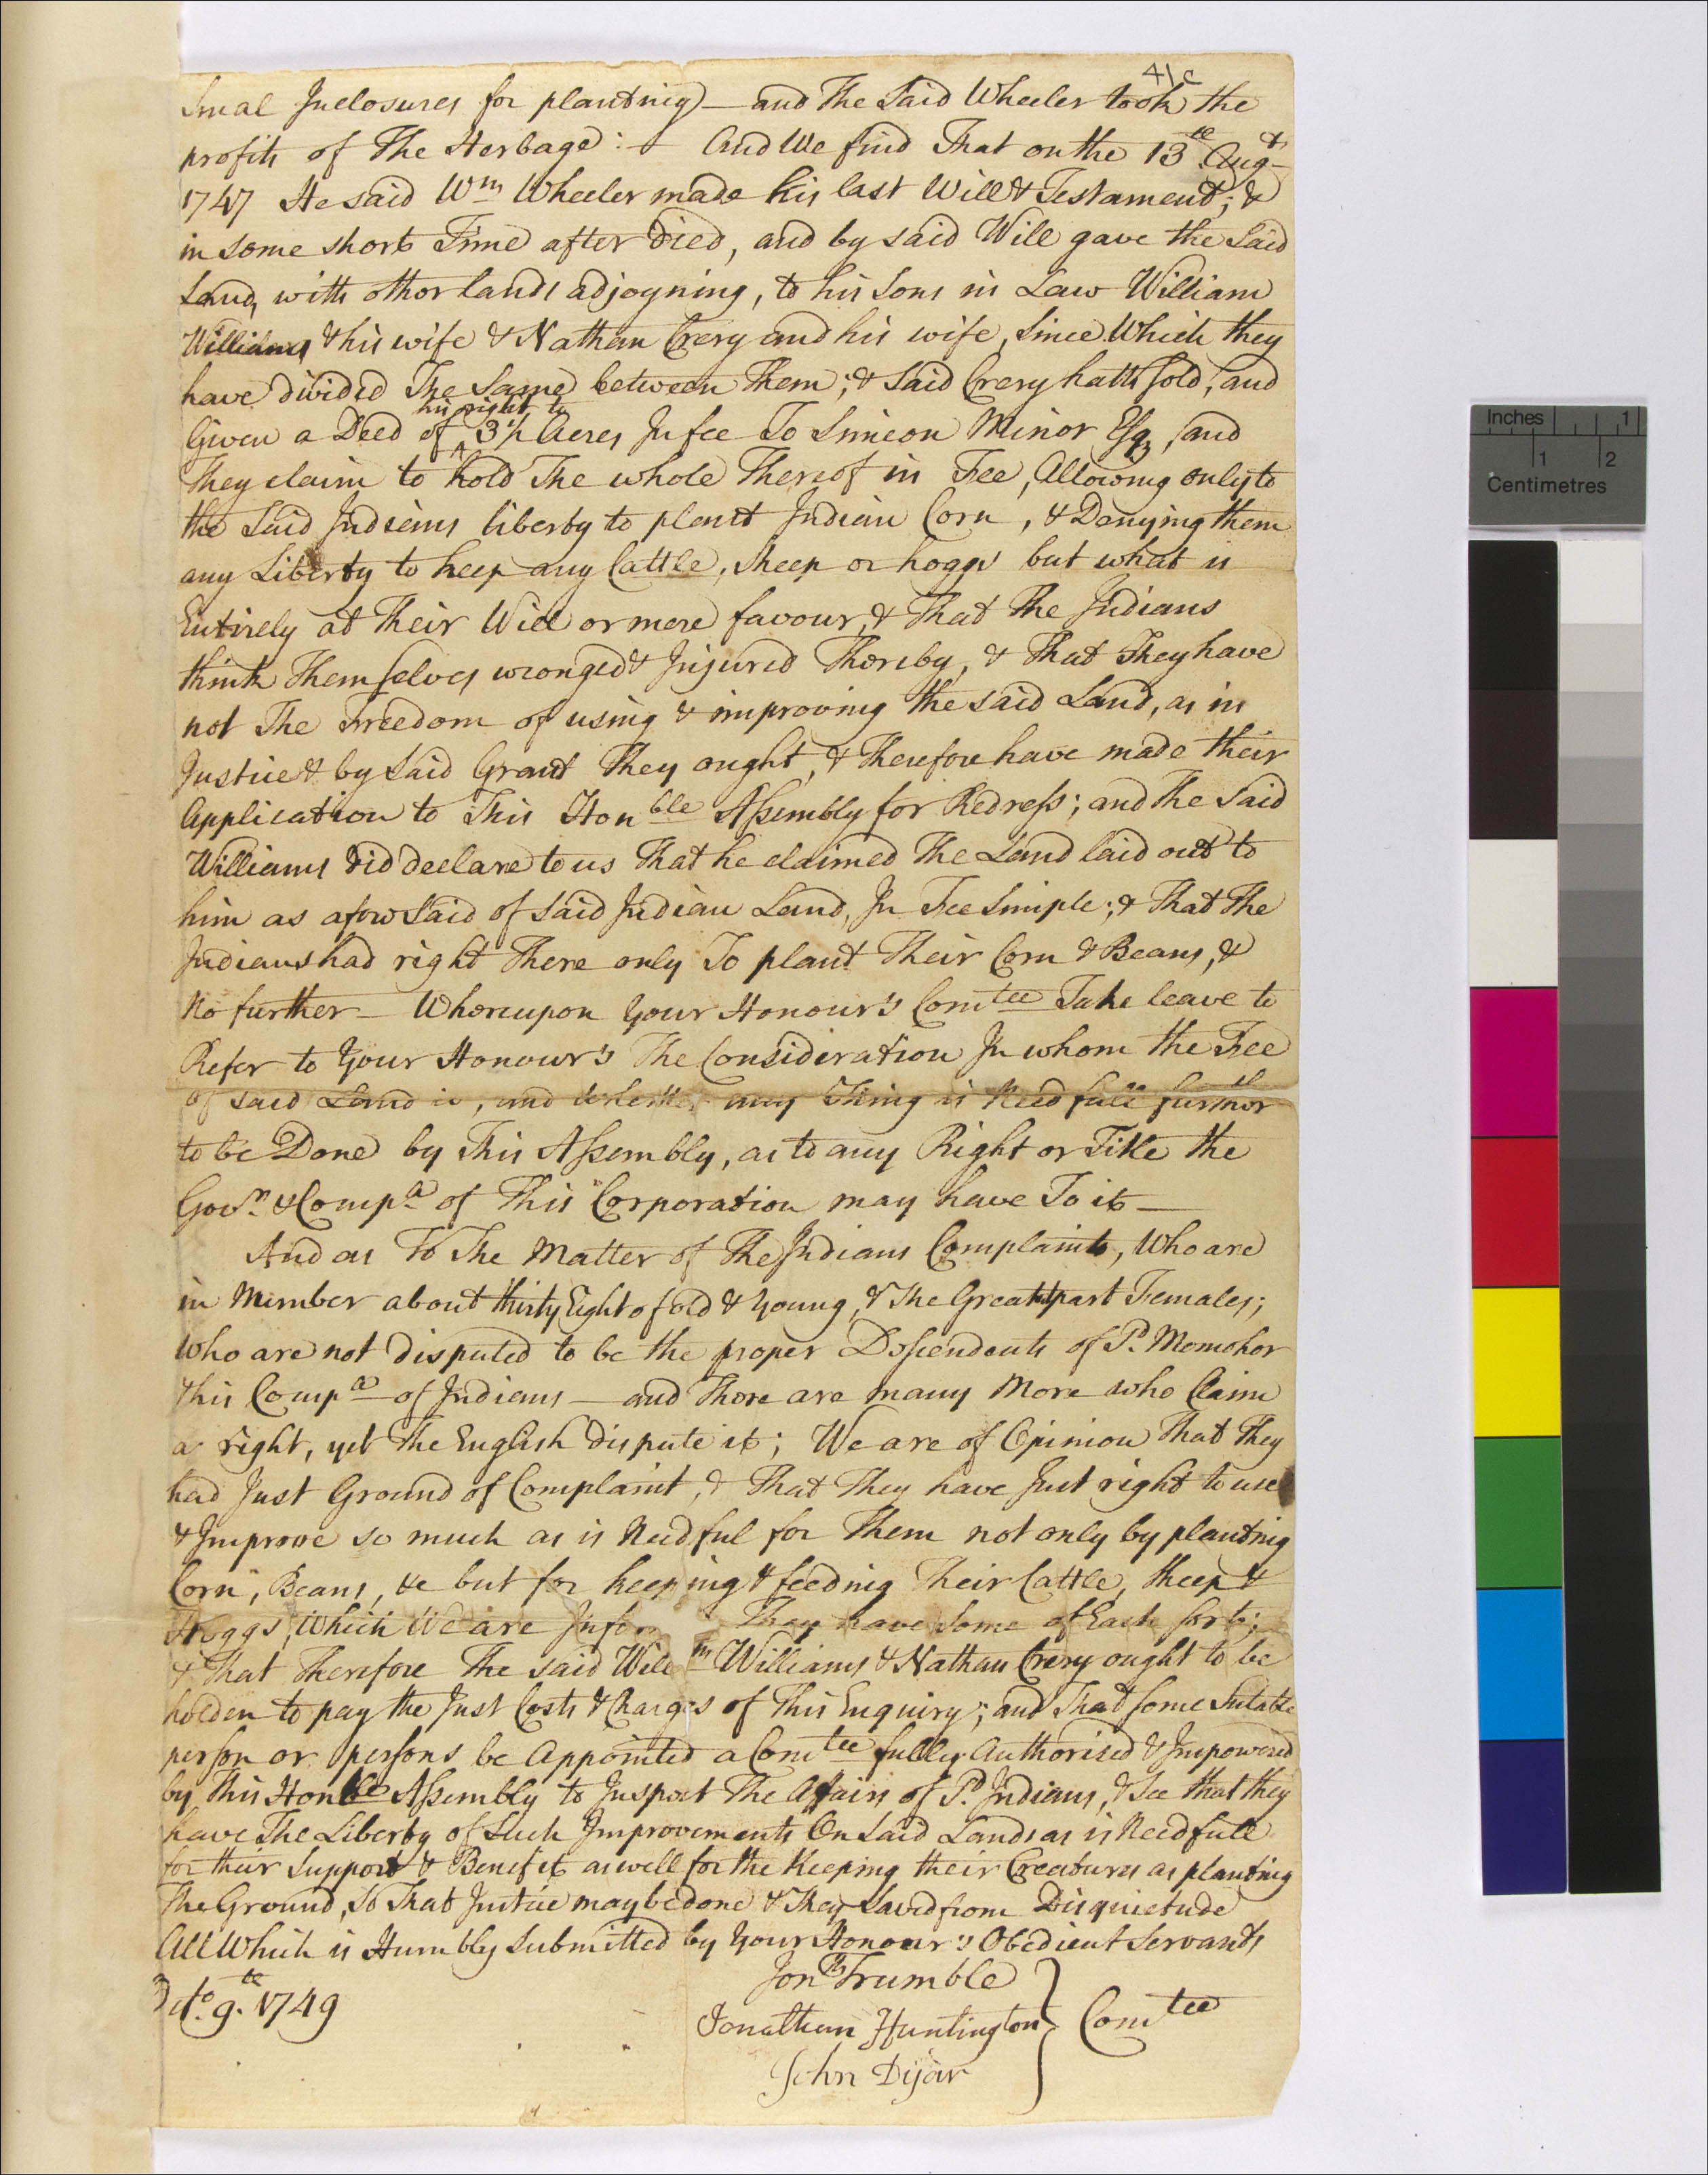 41c
Smal Inclosures for planting) — and The Said Wheeler took the
profits of The Herbage: — And We find That on the 13th Augt
1747 He said Wm Wheeler made his last Will & Testament; &
in some short Time after Died, and by said Will gave the Said
Land, with other lands adjoyning, to his Sons in Law William
Williams & his wife & Nathan Crery and his wife, Since Which they
have divided The Same between Them; & Said Crery hath Sold, and
his right to
Given a Deed of ^ 3½ Acres In fee To Simeon Minor Esqr, and
They claim to hold The whole Thereof in Fee, Allowing only to
the Said Indians liberty to plant Indian Corn, & Denying them
any Liberty to keep any Cattle, Sheep or hoggs but what is
Entirely at Their Will or mere favour, & That The Indians
think Themselves wronged & Injured Thereby, & That They have
not The Freedom of using & improoving the said Land, as in
Justice & by Said Grant They ought, & Therefore have made their
Application to This Honble Assembly for Redress; and The Said
Williams Did declare to us That he claimed The Land laid out to
him as aforesaid of said Indian Land, In Fee Simple; & That The
Indians had right There only To plant Their Corn & Beans, &
No further — Whereupon Your Honour's Comtee Take leave to
Refer to Your Honour's The Consideration In whom the Fee
of said Land is, and Whether any Thing is Needfull further
to be Done by This Assembly, as to any Right or Title the
Govr & Compa of This Corporation may have To it —
And as To The Matter of The Indians Complaints, Who are
in Number about thirty Eight of old & Young, & The Greatest part Females;
who are not disputed to be the proper Descendents of Sd Momohor
& his Compa of Indians — and There are many More who Claim
a right, yet The English dispute it; We are of Opinion That They
had Just Ground of Complaint, & That They have Just right to use
& Improve so much as is Needful for Them not only by planting
Corn, Beans, &c but for keeping & feeding Their Cattle, Sheep &
Hoggs, Which We are Infor They have Some of Each sort;
& That Therefore The said Willm Williams & Nathan Crery ought to be
holden to pay the Just Costs & Charges of This Enquiry; and That some Sutable
person or persons be Appointed a Comtee fully Authorised & Impowered
by This Honble Assembly to Inspect The Affairs of Sd Indians, & See that they
have The Liberty of Such Improvements On Said Lands as is Needfull
for their Support & Benefit as well for the Keeping their Creatures as planting
The Ground, So That Justice may be done & They Saved from Disquietude
All Which is Humbly Submitted by Your Honour's Obedient Servants
Octo. 9th. 1749
Jonth Trumble
Jonathan Huntington } Comtee
John Dijar